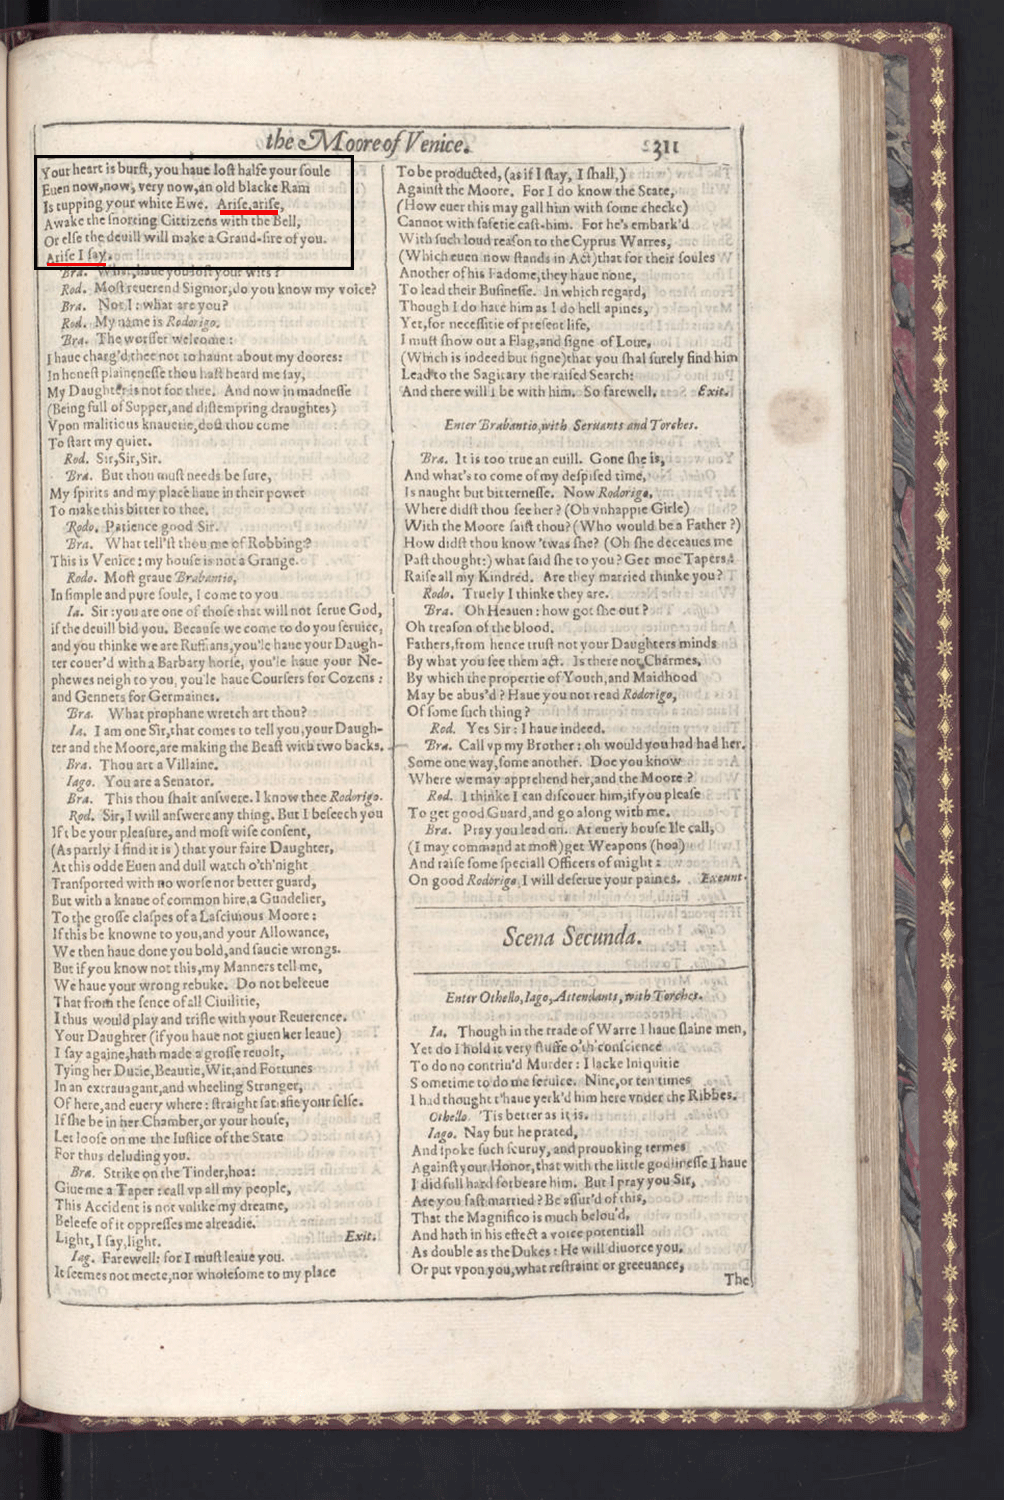 the Moore of Venice.
311
Your heart is burst, you haue lost halfe your soule
Euen now, now, very now, an old blacke Ram
Is tupping your white Ewe. Arise, arise,
Awake the snorting Cittizens with the Bell,
Or else the deuill will make a Grand-sire of you.
Arise I say.
Bra. What, haue you lost your wits?
Rod. Most reuerend Signior, do you know my voice?
Bra. Not I: what are you?
Rod. My name is Rodorigo.
Bra. The worsser welcome:
I haue charg'd thee not to haunt about my doores:
In honest plainenesse thou hast heard me say,
My Daughter is not for thee. And now in madnesse
(Being full of Supper, and distempring draughtes)
Vpon malitious knauerie, dost thou come
To start my quiet.
Rod. Sir, Sir, Sir.
Bra. But thou must needs be sure,
My spirits and my place haue in their power
To make this bitter to thee.
Rodo. Patience good Sir.
Bra. What tell'st thou me of Robbing?
This is Venice: my house is not a Grange.
Rodo. Most graue Brabantio,
In simple and pure soule, I come to you.
Ia. Sir: you are one of those that will not serue God,
if the deuill bid you. Because we come to do you seruice,
and you thinke we are Ruffians, you'le haue your Daugh-
ter couer'd with a Barbary horse, you'le haue your Ne-
phewes neigh to you, you'le haue Coursers for Cozens:
and Gennets for Germaines.
Bra. What prophane wretch art thou?
Ia. I am one Sir, that comes to tell you, your Daugh-
ter and the Moore, are making the Beast with two backs.
Bra. Thou art a Villaine.
Iago. You are a Senator.
Bra. This thou shalt answere. I know thee Rodorigo.
Rod. Sir, I will answere any thing. But I beseech you
If't be your pleasure, and most wise consent,
(As partly I find it is) that your faire Daughter,
At this odde Euen and dull watch o'th'night
Transported with no worse nor better guard,
But with a knaue of common hire, a Gundelier,
To the grosse claspes of a Lasciuious Moore:
If this be knowne to you, and your Allowance,
We then haue done you bold, and saucie wrongs.
But if you know not this, my Manners tell me,
We haue your wrong rebuke. Do not beleeue
That from the sence of all Ciuilitie,
I thus would play and trifle with your Reuerence.
Your Daughter (if you haue not giuen her leaue)
I say againe, hath made a grosse reuolt,
Tying her Dutie, Beautie, Wit, and Fortunes
In an extrauagant, and wheeling Stranger,
Of here, and euery where: straight satisfie your selfe.
If she be in her Chamber, or your house,
Let loose on me the Iustice of the State
For thus deluding you.
Bra. Strike on the Tinder, hoa:
Giue me a Taper: call vp all my people,
This Accident is not vnlike my dreame,
Beleefe of it oppresses me alreadie.
Light, I say, light. Exit.
Iag. Farewell: for I must leaue you.
It seemes not meete, nor wholesome to my place
To be producted, (as if I stay, I shall,)
Against the Moore. For I do know the State,
(How euer this may gall him with some checke)
Cannot with safetie cast-him. For he's embark'd
With such loud reason to the Cyprus Warres,
(Which euen now stands in Act) that for their soules
Another of his Fadome, they haue none,
To lead their Businesse. In which regard,
Though I do hate him as I do hell apines,
Yet, for necessitie of present life,
I must show out a Flag, and signe of Loue,
(Which is indeed but signe) that you shal surely find him
Lead to the Sagitary the raised Search:
And there will I be with him. So farewell. Exit.
Enter Brabantio, with Seruants and Torches.
Bra. It is too true an euill. Gone she is,
And what's to come of my despised time,
Is naught but bitternesse. Now Rodorigo,
Where didst thou see her? (Oh vnhappie Girle)
With the Moore saist thou? (Who would be a Father?)
How didst thou know 'twas she? (Oh she deceaues me
Past thought:) what said she to you? Get moe Tapers:
Raise all my Kindred. Are they married thinke you?
Rodo. Truely I thinke they are.
Bra. Oh Heauen: how got she out?
Oh treason of the blood.
Fathers, from hence trust not your Daughters minds
By what you see them act. Is there not Charmes,
By which the propertie of Youth, and Maidhood
May be abus'd? Haue you not read Rodorigo,
Of some such thing?
Rod. Yes Sir: I haue indeed.
Bra. Call vp my Brother: oh would you had had her.
Some one way, some another. Doe you know
Where we may apprehend her, and the Moore?
Rod. I thinke I can discouer him, if you please
To get good Guard, and go along with me.
Bra. Pray you lead on. At euery house Ile call,
(I may command at most) get Weapons (hoa)
And raise some speciall Officers of might:
On good Rodorigo, I will deserue your paines. Exeunt.
Scena Secunda.
Enter Othello, Iago, Attendants, with Torches.
Ia. Though in the trade of Warre I haue slaine men,
Yet do I hold it very stuffe o'th'conscience
To do no contriu'd Murder: I lacke Iniquitie
Sometime to do me seruice. Nine, or ten times
I had thought t'haue yerk'd him here vnder the Ribbes.
Othello. 'Tis better as it is.
Iago. Nay but he prated,
And spoke such scuruy, and prouoking termes
Against your Honor, that with the little godlinesse I haue
I did full hard forbeare him. But I pray you Sir,
Are you fast married? Be assur'd of this,
That the Magnifico is much belou'd,
And hath in his effect a voice potentiall
As double as the Dukes: He will diuorce you.
Or put vpon you, what restraint or greeuance,
The